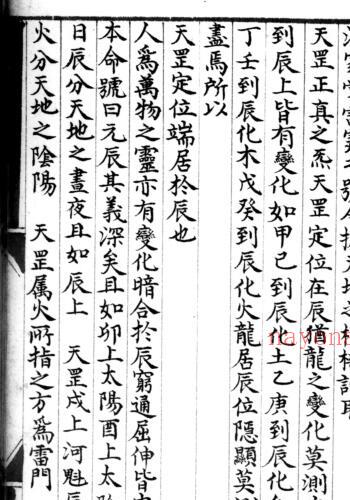 天罡正真之炁天罡定位在辰猶龍之變化莫測
到辰上皆有變化如甲己到辰化土乙庚到辰化
丁壬到辰化木戊癸到辰化火龍居辰位隱顯莫
盡焉所以
天罡定位端居於辰也
人爲萬物之靈亦有變化暗合於辰窮通屈伸皆
本命號曰元辰其義深矣且如卯上太陽酉上太
日辰分天地之晝夜且如辰上 天罡戌上河魁辰
火分天地之陰陽 天罡属火所指之方爲雷門
nayona